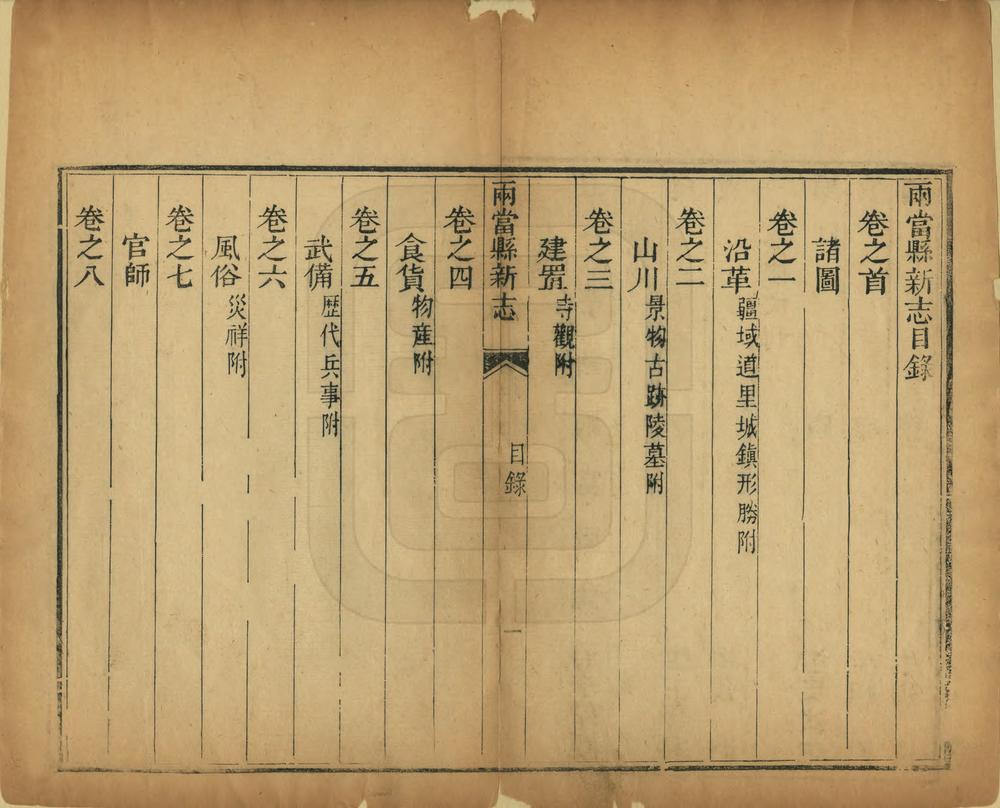 兩當縣新志目錄
卷之首
諸圖
卷之一
沿革 疆域道里城鎮形勝附
卷之二
山川 景物古跡陵墓附
卷之三
建置 寺觀附
兩當縣新志 目錄 一
卷之四
食貨 物產附
卷之五
武備 歷代兵事附
卷之六
風俗 災祥附
卷之七
官師
卷之八